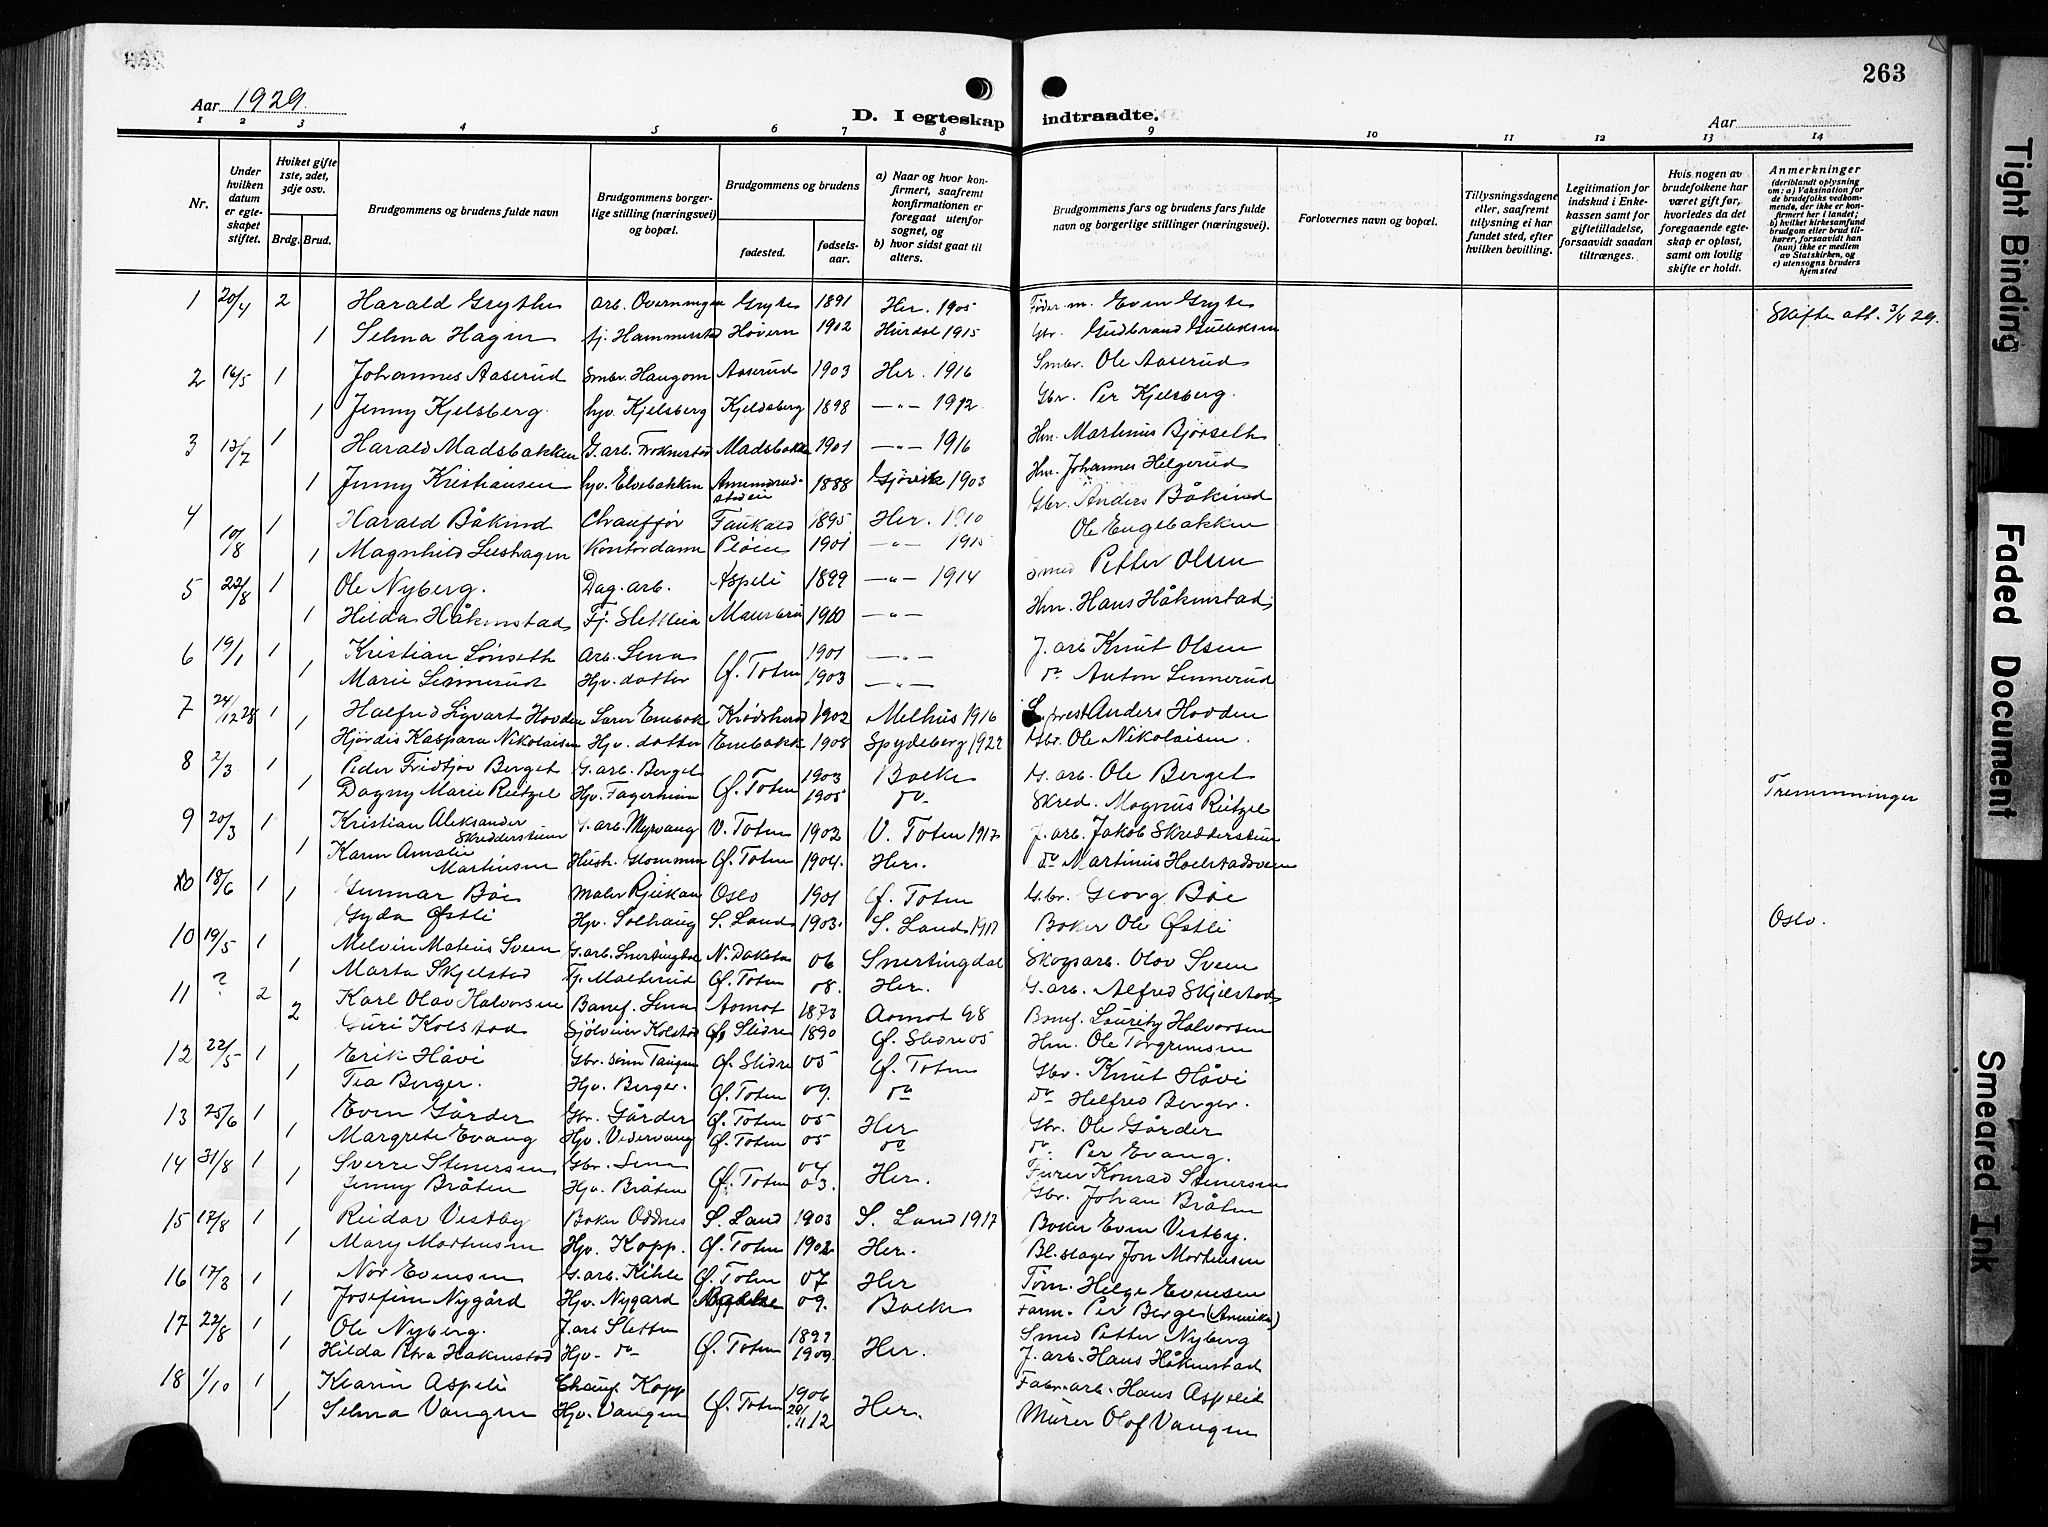 263
Aar 1929.
D. I egteskap indtraadte.
Aar
1 2 3 4 5 6 7 8 9 10 11 12 13 14
Nr.
Under hvilken datum er egteskapet stiftet.
Hviket gifte 1ste, 2det, 3dje osv.
Brdg. Brud.
Brudgommens og brudens fulde navn
Brudgommens borgerlige stilling (næringsvei) og bopæl.
Brudgommens og brudens
fødested.
fødselsaar.
a) Naar og hvor konfirmert, saafremt konfirmationen er foregaat utenfor sognet, og
b) hvor sidst gaat til alters.
Brudgommens fars og brudens fars fulde navn og borgerlige stillinger (næringsvei).
Forlovernes navn og bopæl.
Tillysningsdagene eller, saafremt tillysning ei har fundet sted, efter hvilken bevilling.
Legitimation for indskud i Enkekassen samt for giftetilladelse, forsaavidt saadan tiltrænges.
Hvis nogen av brudefolkene har været gift før, hvorledes da det foregaaende egteskap er opløst, samt om lovlig skifte er holdt.
Anmerkninger
(deriblandt oplysning om: a) Vaksination for de brudefolks vedkommende, der ikke er konfirmert her i landet; b) hvilket kirkesamfund brudgom eller brud tilhører, forsaavidt han (hun) ikke er medlem av Statskirken, og c) utensogns bruders hjemsted
1 20/4 2 Harald Grythe arb. Overningen Gryte 1891 Her. 1905 Føder m. Even Gryte
1 Selma Hagen tj. Hammerstad Høvern 1902 Hurdal 1915 Gbr. Gudbrand Gulliksen Skifte att. 3/4 29.
2 16/5 1 Johannes Aaserud Smbr. Haugom Aaserud 1903 Her. 1916 Smbr. Ole Aaserud
1 Jenny Kjelsberg. hjv. Kjelsberg Kjeldsberg 1898 —"— 1912 Gbr. Per Kjelsberg.
3 13/7 1 Harald Madsbakken G. arb. Froknestad Madsbakke 1901 —"— 1916 Hm. Martinus Bjørseth
1 Jenny Kristiansen hjv. Elvebakken 1888 Gjøvik 1903 Hm. Johannes Helgerud
4 10/8 1 Harald Båkind Chauffør Faukald 1895 Her. 1910 Gbr. Anders Båkind
1 Magnhild Seeshagen Kontordame Pløien 1901 —"— 1915 Ole Engebakken
5 22/8 1 Ole Nyberg. Dag. arb. Aspeli 1899 —"— 1914 Smed Petter Olsen
1 Hilda Håkenstad Tj. Slettlia 1910 —"— Hm. Hans Håkenstad
6 19/1 1 Kristian Lønseth Arb. Lena 1901 —"— J. arb Knut Olsen
1 Marie Linnerud Hjv. datter Ø. Toten 1903 —"— do Anton Linnerud
7 24/12 28 1 Halfred Sigvart Hovden Lærer Enebak Krødsherad 1902 Melhus 1916 Anders Hovden
1 Hjørdis Kaspara Nikolaisen Hjv. datter Enebakk 1908 Spydeberg 1922 Gbr. Ole Nikolaisen.
8 2/3 1 Peder Fridtjov Berget G. arb. Berget 1903 Balke G. arb. Ole Berget
1 Dagny Marie Reitzel Hjv. Fagerheim Ø. Toten 1905 do Skred. Magnus Reitzel Tremmninger
9 20/3 1 Kristian Aleksander Skredderstuen G. arb. Myrvang V. Toten 1902 V. Toten 1917 J. arb. Jakob Skredderstuen
1 Karen Amalie Martinsen Hush. Glommen Ø. Toten 1904. Her. do Martinus Hoelstadsveen
10 18/6 1 Gunnar Bøe Maler Rjukan Oslo 1901 Ø. Toten Gbr. Georg Bøe
1 Gyda Østli Hjv. Solhaug S. Land 1903. S. Land 1917 Baker Ole Østli Oslo.
10 19/5 1 Melvin Mateus Sveen G. arb. Snertingdal N. Dakota 06 Snertingdal Skogsarb. Olav Sveen
1 Marta Skjelstad Tj. Malterud Ø. Toten 08. Her. G. arb. Alfred Skjelstad
11 ? 2 Karl Olav Halvorsen Banef. Lena Aamot 1873 Aamot 98 Banef. Lauritz Halvorsen
2 Guri Kolstad Sjølveier Kolstad Ø. Slidre 1890 Ø. Slidre 05 Hm. Ole Torgrimsen
12 22/5 1 Erik Håvi Gbr. sønn Tangen Ø. Slidre 05 Ø. Toten Gbr. Knut Håvi
1 Tea Berger. Hjv. Berger. Ø. Toten 09. do do Helfred Berger.
13 25/6 1 Even Gårder Gbr. Gårder Ø. Toten 05 Her Gbr. Ole Gårder
1 Margrete Evang Hjv. Vedervang Ø. Toten 05 do do Per Evang.
14 31/8 1 Sverre Stenersen Gbr. Lena 04 Furer Konrad Stenersen
1 Jenny Bråten Hjv. Bråten Ø. Toten 03. Her. Gbr. Johan Bråten
15 17/8 1 Reidar Vestby Baker Odnes S. Land 1903 S. Land 1917 Baker Even Vestby.
1 Mary Martinsen Hjv. Kopp. Ø. Toten 1902 Her. Bl. slager Jon Mortensen
16 17/8 1 Nor Evensen G. arb. Kihle Ø. Toten 07 Her Tøm. Helge Evensen
1 Josefine Nygård Hjv. Nygard 09. Balke Farm. Per Berger (Amerika)
17 22/8 1 Ole Nyberg. J. arb Sletten 1899 Smed Petter Nyberg
1 Hilda Petra Hakenstad Hjv. do Ø. Toten 1909. Her. J. arb. Hans Håkenstad
18 1/10 1 Klarin Aspeli Chauf Kopp 1906 Fabr. arb. Hans Aspelie
1 Selma Vangen Hjv. Vangen Ø. Toten 29/11 12 Her. Murer Olof Vangen
Tight Binding
Faded Document
Smeared Ink